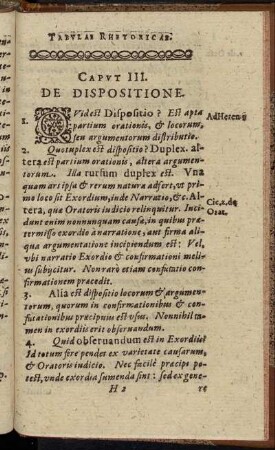 TABVLAE RHETORICAE.
CAPVT III.
DE DISPOSITIONE.
1. QVid est Dispositio? Est apta
partium orationis, & locorum,
seu argumentorum distributio.
AdHeren.
2. Quotuplex est dispositio? Duplex. al-
tera est partium orationis, altera argumen-
torum. Illa rursum duplex est. Vna
quam ars ipsa & rerum natura adfert, vt pri-
mo loco sit Exordium, inde Narratio, &c. Al-
tera, quæ Oratoris iudicio relinquitur. Inci-
Cic. 2. de
Orat.
dunt enim nonnunquam causæ, in quibus præ-
termisso exordio à narratione, aut firma ali-
qua argumentatione incipiendum est: Vel,
vbi narratio Exordio & confirmationi meli-
us subijcitur. Non raro etiam confutatio con-
firmationem præcedit.
3. Alia est dispositio locorum & argumen-
torum, quorum in confirmationibus & con-
futationibus præcipuus est vsus. Nonnihil ta-
men in exordiis erit obseruandum.
4. Quid obseruandum est in Exordiis?
Id totum fere pendet ex varietate causarum,
& Oratoris iudicio. Nec facilè præcipi po-
test, vnde exordia sumenda sint: sed ex gene-
H 2 re